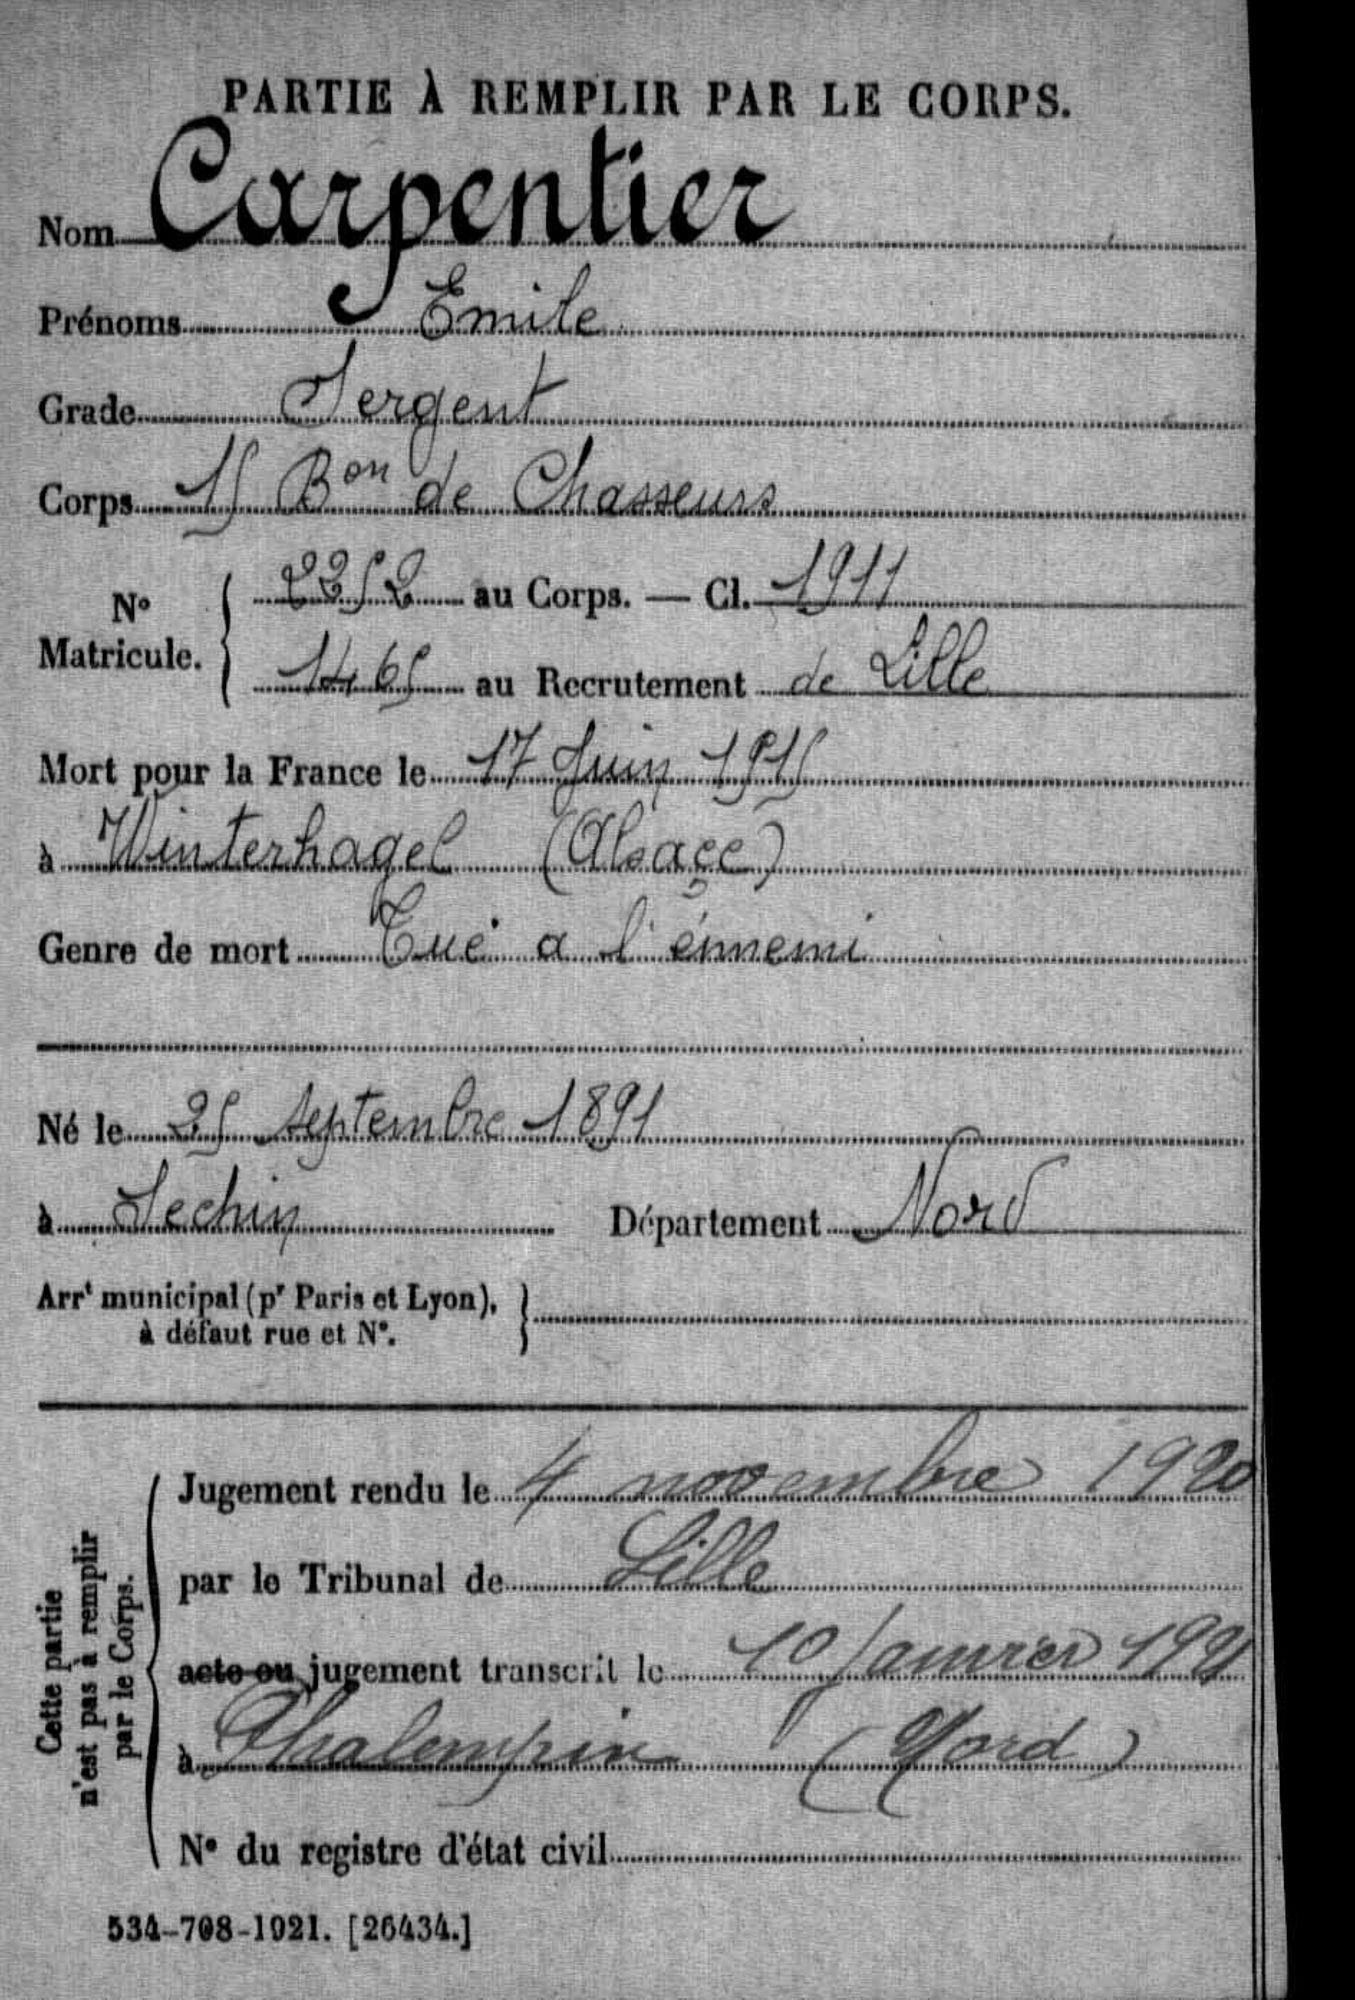 PARTIE À REMPLIR PAR LE CORPS.
Nom Carpentier
Prénoms Emile
Grade Sergent
Corps 15 Bon de Chasseurs
N° Matricule. { 2252 au Corps. — Cl. 1911
1465 au Recrutement de Lille
Mort pour la France le 17 Juin 1915
à Winterhagel (Alsace)
Genre de mort Tué a l'énnemi
Né le 25 septembre 1891
à Sechin Département Nord
Arrt municipal (pr Paris et Lyon), }
à défaut rue et N°.
Cette partie
n'est pas à remplir
par le Corps.
Jugement rendu le 4 novembre 1920
par le Tribunal de Lille
acte ou jugement transcrit le 10 Janvier 1921
à Phalempin (Nord)
N° du registre d'état civil
534-708-1921. [26434.]